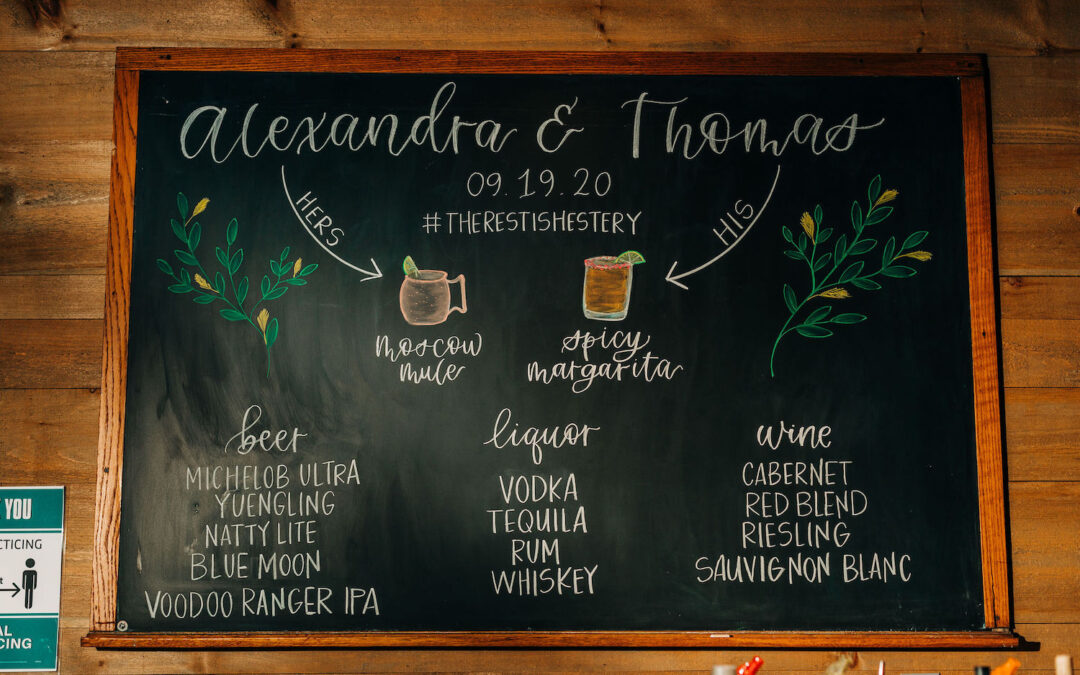 Alexandra & Thomas
09.19.20
#THERESTISHESTERY
HERS
HIS
moscow
mule
spicy
margarita
beer
MICHELOB ULTRA
YUENGLING
NATTY LITE
BLUE MOON
VOODOO RANGER IPA
liquor
VODKA
TEQUILA
RUM
WHISKEY
wine
CABERNET
RED BLEND
RIESLING
SAUVIGNON BLANC
YOU